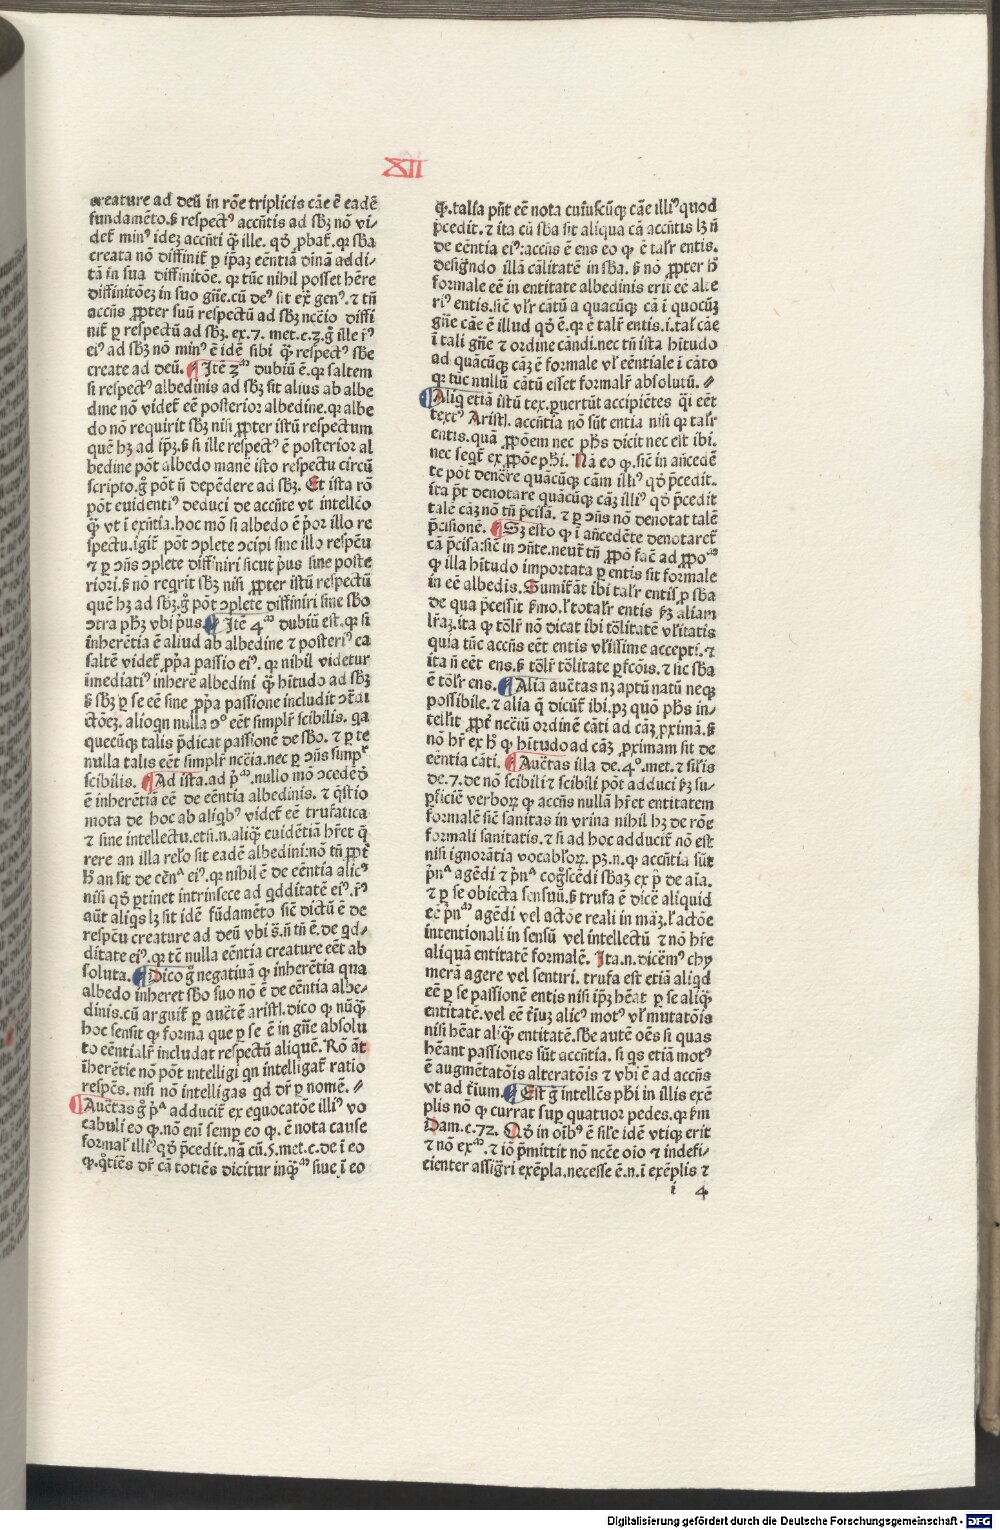 XII
creature ad deū in rōe triplicis cāe ē eadē
fundamēto.ß respectꝰ accn̄tis ad sbꝫ nō vi⸗
det᷑ minꝰ ideꝫ accn̄ti q̄ꝫ ille. qḋ ꝓbat᷑.qꝛ sba
creata nō diffinit᷑ ꝑ ip̄aꝫ eēntiā diuinā addi⸗
tā in sua diffinitōe. qꝛ tūc nihil posset hēre
diffinitōeꝫ in suo gn̄e.cū deꝰ sit ex̄ genꝰ.⁊ tn̄
accn̄s ꝓpter suū respectū ad sbꝫ nccīo diffi
nit᷑ ꝑ respectū ad sbꝫ. ex.7. met.c.3.g̊ ille r̄ꝰ
eiꝰ ad sbꝫ nō minꝰ ē idē sibi q̄ꝫ respectꝰ sbe
create ad deū. ¶ Itē 3ᵐ dubiū ē.qꝛ saltem
si respectꝰ albedinis ad sbꝫ sit alius ab albe
dine nō videt᷑ eē posterior albedine.qꝛ albe
do nō requirit sbꝫ nisi ꝓpter istū respectum
quē hꝫ ad ip̄ꝫ.ß si ille respectꝰ ē posterior al
bedine pōt albedo manē isto respectu circū
scripto.g̊ pōt n̄ depēdere ad sbꝫ. Et ista rō
pōt euidentiꝰ deduci de accn̄te vt intellc̄o
q̄ꝫ vt ī exn̄tia.hoc mō si albedo ē p̄oꝛ illo re
spectu.igit᷑ pōt ɔplete ɔcipi sine illo respc̄u
⁊ ꝑ ɔn̄s ɔplete diffiniri sicut pͥus sine poste
riori.ß nō reqrit sbꝫ nisi ꝓpter istū respectū
quē hꝫ ad sbꝫ.g̊ pōt ɔplete diffiniri sine sbo
ɔtra ph̄ꝫ vbi pͥus. ¶ Itē 4ᵐ dubiū est.qꝛ si
inherētia ē aliud ab albedine ⁊ posteriꝰ ea
saltē videt᷑ ꝓp̄a passio eiꝰ. qꝛ nihil videtur
īmediatiꝰ inherē albedini q̄ꝫ hītudo ad sbꝫ
ß sbꝫ ꝑ se eē sine ꝓp̄a passione includit ɔt̄di
ctōeꝫ. alioqn nulla ɔᵒ eēt simplr̄ scibilis. qa
quecūqꝫ talis p̄dicat passionē de sbo. ⁊ ꝑ te
nulla talis eēt simplr̄ nccīa.nec ꝑ ɔn̄s simplr̄
scibilis. ¶ Ad ista.ad pᵐ.nullo mō ɔcedēḋ
ē inherētiā eē de eēntia albedinis. ⁊ q̄stio
mota de hoc ab aliqbꝰ videt᷑ eē trufatica
⁊ sine intellectu.etsi.n.aliq̄ꝫ euidētiā hr̄et q̄
rere an illa relō sit eadē albedini:nō tn̄ ꝓpt̄
h̊ an sit de eēnᵃ eiꝰ.qꝛ nihil ē de eēntia alicꝰ
nisi qḋ ꝑtinet intrinsece ad qdditatē eiꝰ.r̄ꝰ
aūt aliqs lꝫ sit idē fūdamēto sic̄ dictū ē de
respc̄u creature ad deū vbi s̄.n̄ tn̄ ē.de qd⸗
ditate eiꝰ.qꝛ tc̄ nulla eēntia creature eēt ab
soluta. ¶ Dico g̊ negatiuā ꝙ inherētia qua
albedo inheret sbo suo nō ē de eēntia albe⸗
dinis.cū arguit᷑ ꝑ auc̄tē aristl.dico ꝙ nūq̄ꝫ
hoc sensit ꝙ forma que ꝑ se ē in gn̄e absolu
to eēntialr̄ includat respectū aliquē. Rō at̄
īherētie nō pōt intelligi qn intelligat᷑ ratio
respc̄s. nisi nō intelligas qd dr̄ ꝑ nomē. ⸗
¶ Auc̄tas g̊ pᵃ adducit᷑ ex equocatōe illiꝰ vo
cabuli eo ꝙ.nō enī semꝑ eo ꝙ. ē nota cause
formal̄ illiꝰ qḋ p̄cedit.nā cū.5.met.c.de ī eo
ꝙ.q̊tiēs dr̄ cā totiēs dicitur inq̄ᵐ siue ī eo
ꝙ.talia pn̄t eē nota cuiuscūqꝫ cāe illiꝰ quod
p̄cedit.⁊ ita cū sba sit aliqua cā accn̄tis lꝫ n̄
de eēntia eiꝰ:accn̄s ē ens eo ꝙ ē talr̄ entis.
designdo illā cālitatē in sba. ß nō ꝓpter h̊
formale eē in entitate albedinis erit eē alte
riꝰ entis.sic̄ vlr̄ cātū a quacūqꝫ cā ī quocūꝫ
gn̄e cāe ē illud qḋ ē.qꝛ ē talr̄ entis.i.tal̄ cāe
ī tali gn̄e ⁊ ordine cāndi.nec tn̄ ista hītudo
ad quācūqꝫ cāꝫ ē formale vl̄ eēntiale ī cāto
qꝛ tūc nullū cātū esset formalr̄ absolutū. ⸗
¶ Aliq etiā istū tex.ꝑuertūt accipiētes q̄i eēt
textꝰ Aristl. accn̄tia nō sūt entia nisi qꝛ talr̄
entis.quā ꝓpōem nec ph̄s dicit nec est ibi.
nec seqt᷑ ex ꝓpōe ph̄i. Nā eo ꝙ.sic̄ in an̄cedē
te pōt denōre quācūqꝫ cām illiꝰ qḋ p̄cedit.
ita pōt denotare quācūqꝫ cāꝫ illiꝰ qḋ p̄cedit
talē cāꝫ nō tn̄ p̄cisā. ⁊ ꝑ ɔn̄s nō denotat talē
p̄cisionē. ¶ Sꝫ esto ꝙ ī an̄cedēte denotaret᷑
cā p̄cisa:sic̄ in ɔn̄te.neut᷑ tn̄ ꝓpō fac̄ ad ꝓpoᵐ
ꝙ illa hītudo importata ꝑ entis sit formale
in eē albedis. Sumit᷑ at̄ ibi talr̄ entis ꝓ sba
de qua p̄cessit s̄mo.l̄ totalr̄ entis sꝫ aliam
lr̄aꝫ.ita ꝙ tōlr̄ nō dicat ibi tōlitatē vl̄itatis
quia tūc accn̄s eēt entis vl̄issime accepti.⁊
ita n̄ eēt ens.ß tōlr̄ tōlitate ꝑfcōis.⁊ sic sba
ē tōlr̄ ens. ¶ Alia auc̄tas nꝫ aptū natū neqꝫ
possibile.⁊ alia q̄ dicūt᷑ ibi.pꝫ quō ph̄s in⸗
telr̄it ꝓpt̄ nccīū ordinē cāti ad cāꝫ ꝓximā.ß
nō hr̄ ex h̊ ꝙ hītudo ad cāꝫ ꝓximam sit de
eēntia cāti. ¶ Auc̄tas illa de.4ᵒ.met.⁊ sil̄is
de.7.de nō scibili ⁊ scibili pōt adduci sꝫ su⸗
ꝑficiē verboꝝ ꝙ accn̄s nullā hr̄et entitatem
formalē sic̄ sanitas in vrina nihil hꝫ de rōe
formali sanitatis.⁊ si ad hoc adducit᷑ nō est
nisi ignorātia vocabl̄oꝝ. pꝫ.n.ꝙ accn̄tia sūt
prīnᵃ agēdi ⁊ prīnᵃ cog̊scēdi sbaꝫ ex pͥ de aīa.
⁊ ꝑ se obiecta sensuū.ß trufa ē dicē aliquid
eē prīnᵐ agēdi vel actōe reali in māꝫ.l̄ actōe
intentionali in sensū vel intellectū ⁊ nō hr̄e
aliquā entitatē formalē. Ita.n.dicēmꝰ chy
merā agere vel sentiri. trufa est etiā aliqd
eē ꝑ se passionē entis nisi ip̄ꝫ hēat ꝑ se aliq̄ꝫ
entitatē.vel eē t̄iuꝫ alicꝰ motꝰ vl̄ mutatōis
nisi hēat aliq̄ꝫ entitatē.sbe autē oēs si quas
hēant passiones sūt accn̄tia. si qs etiā motꝰ
ē augmētatōis alteratōis ⁊ vbi ē ad accn̄s
vt ad t̄ium. ¶ Est g̊ intellc̄s ph̄i in illis exē
plis nō ꝙ currat suꝑ quatuor pedes.qꝛ sm̄
Dam.c.72. Qḋ in oībꝰ ē sil̄e idē vtiqꝫ erit
⁊ nō exᵐ.⁊ iō p̄mittit nō ncc̄e oīo ⁊ indefi⸗
cienter assig̊ri exēpla.necesse ē.n.ī exēplis ⁊
i 4
Digitalisierung gefördert durch die Deutsche Forschungsgemeinschaft - DFG